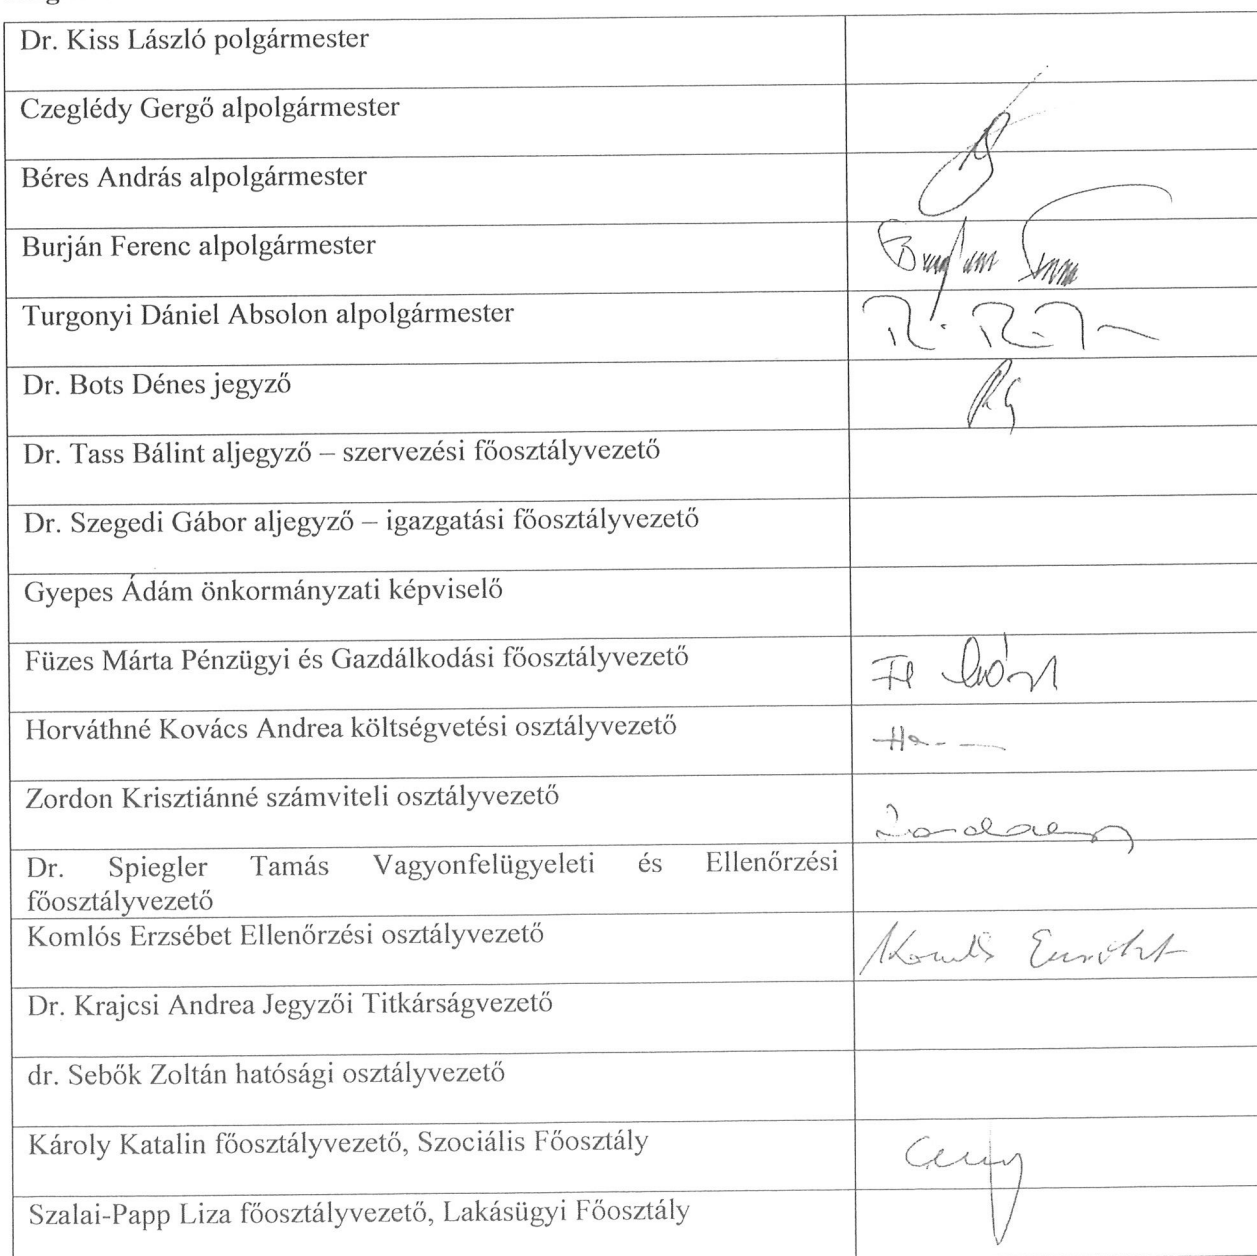 Dr. Kiss László polgármester
Czeglédy Gergő alpolgármester
Béres András alpolgármester
Burján Ferenc alpolgármester
Turgonyi Dániel Absolon alpolgármester
Dr. Bots Dénes jegyző
Dr. Tass Bálint aljegyző – szervezési főosztályvezető
Dr. Szegedi Gábor aljegyző – igazgatási főosztályvezető
Gyepes Ádám önkormányzati képviselő
Füzes Márta Pénzügyi és Gazdálkodási főosztályvezető
Horváthné Kovács Andrea költségvetési osztályvezető
Zordon Krisztiánné számviteli osztályvezető
Dr. Spiegler Tamás Vagyonfelügyeleti és Ellenőrzési
főosztályvezető
Komlós Erzsébet Ellenőrzési osztályvezető
Dr. Krajcsi Andrea Jegyzői Titkárságvezető
dr. Sebők Zoltán hatósági osztályvezető
Károly Katalin főosztályvezető, Szociális Főosztály
Szalai-Papp Liza főosztályvezető, Lakásügyi Főosztály